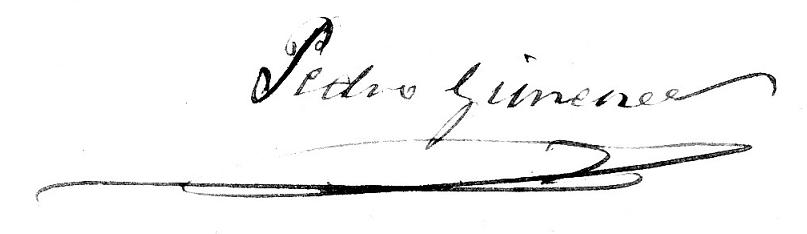 Pedro Gimenez